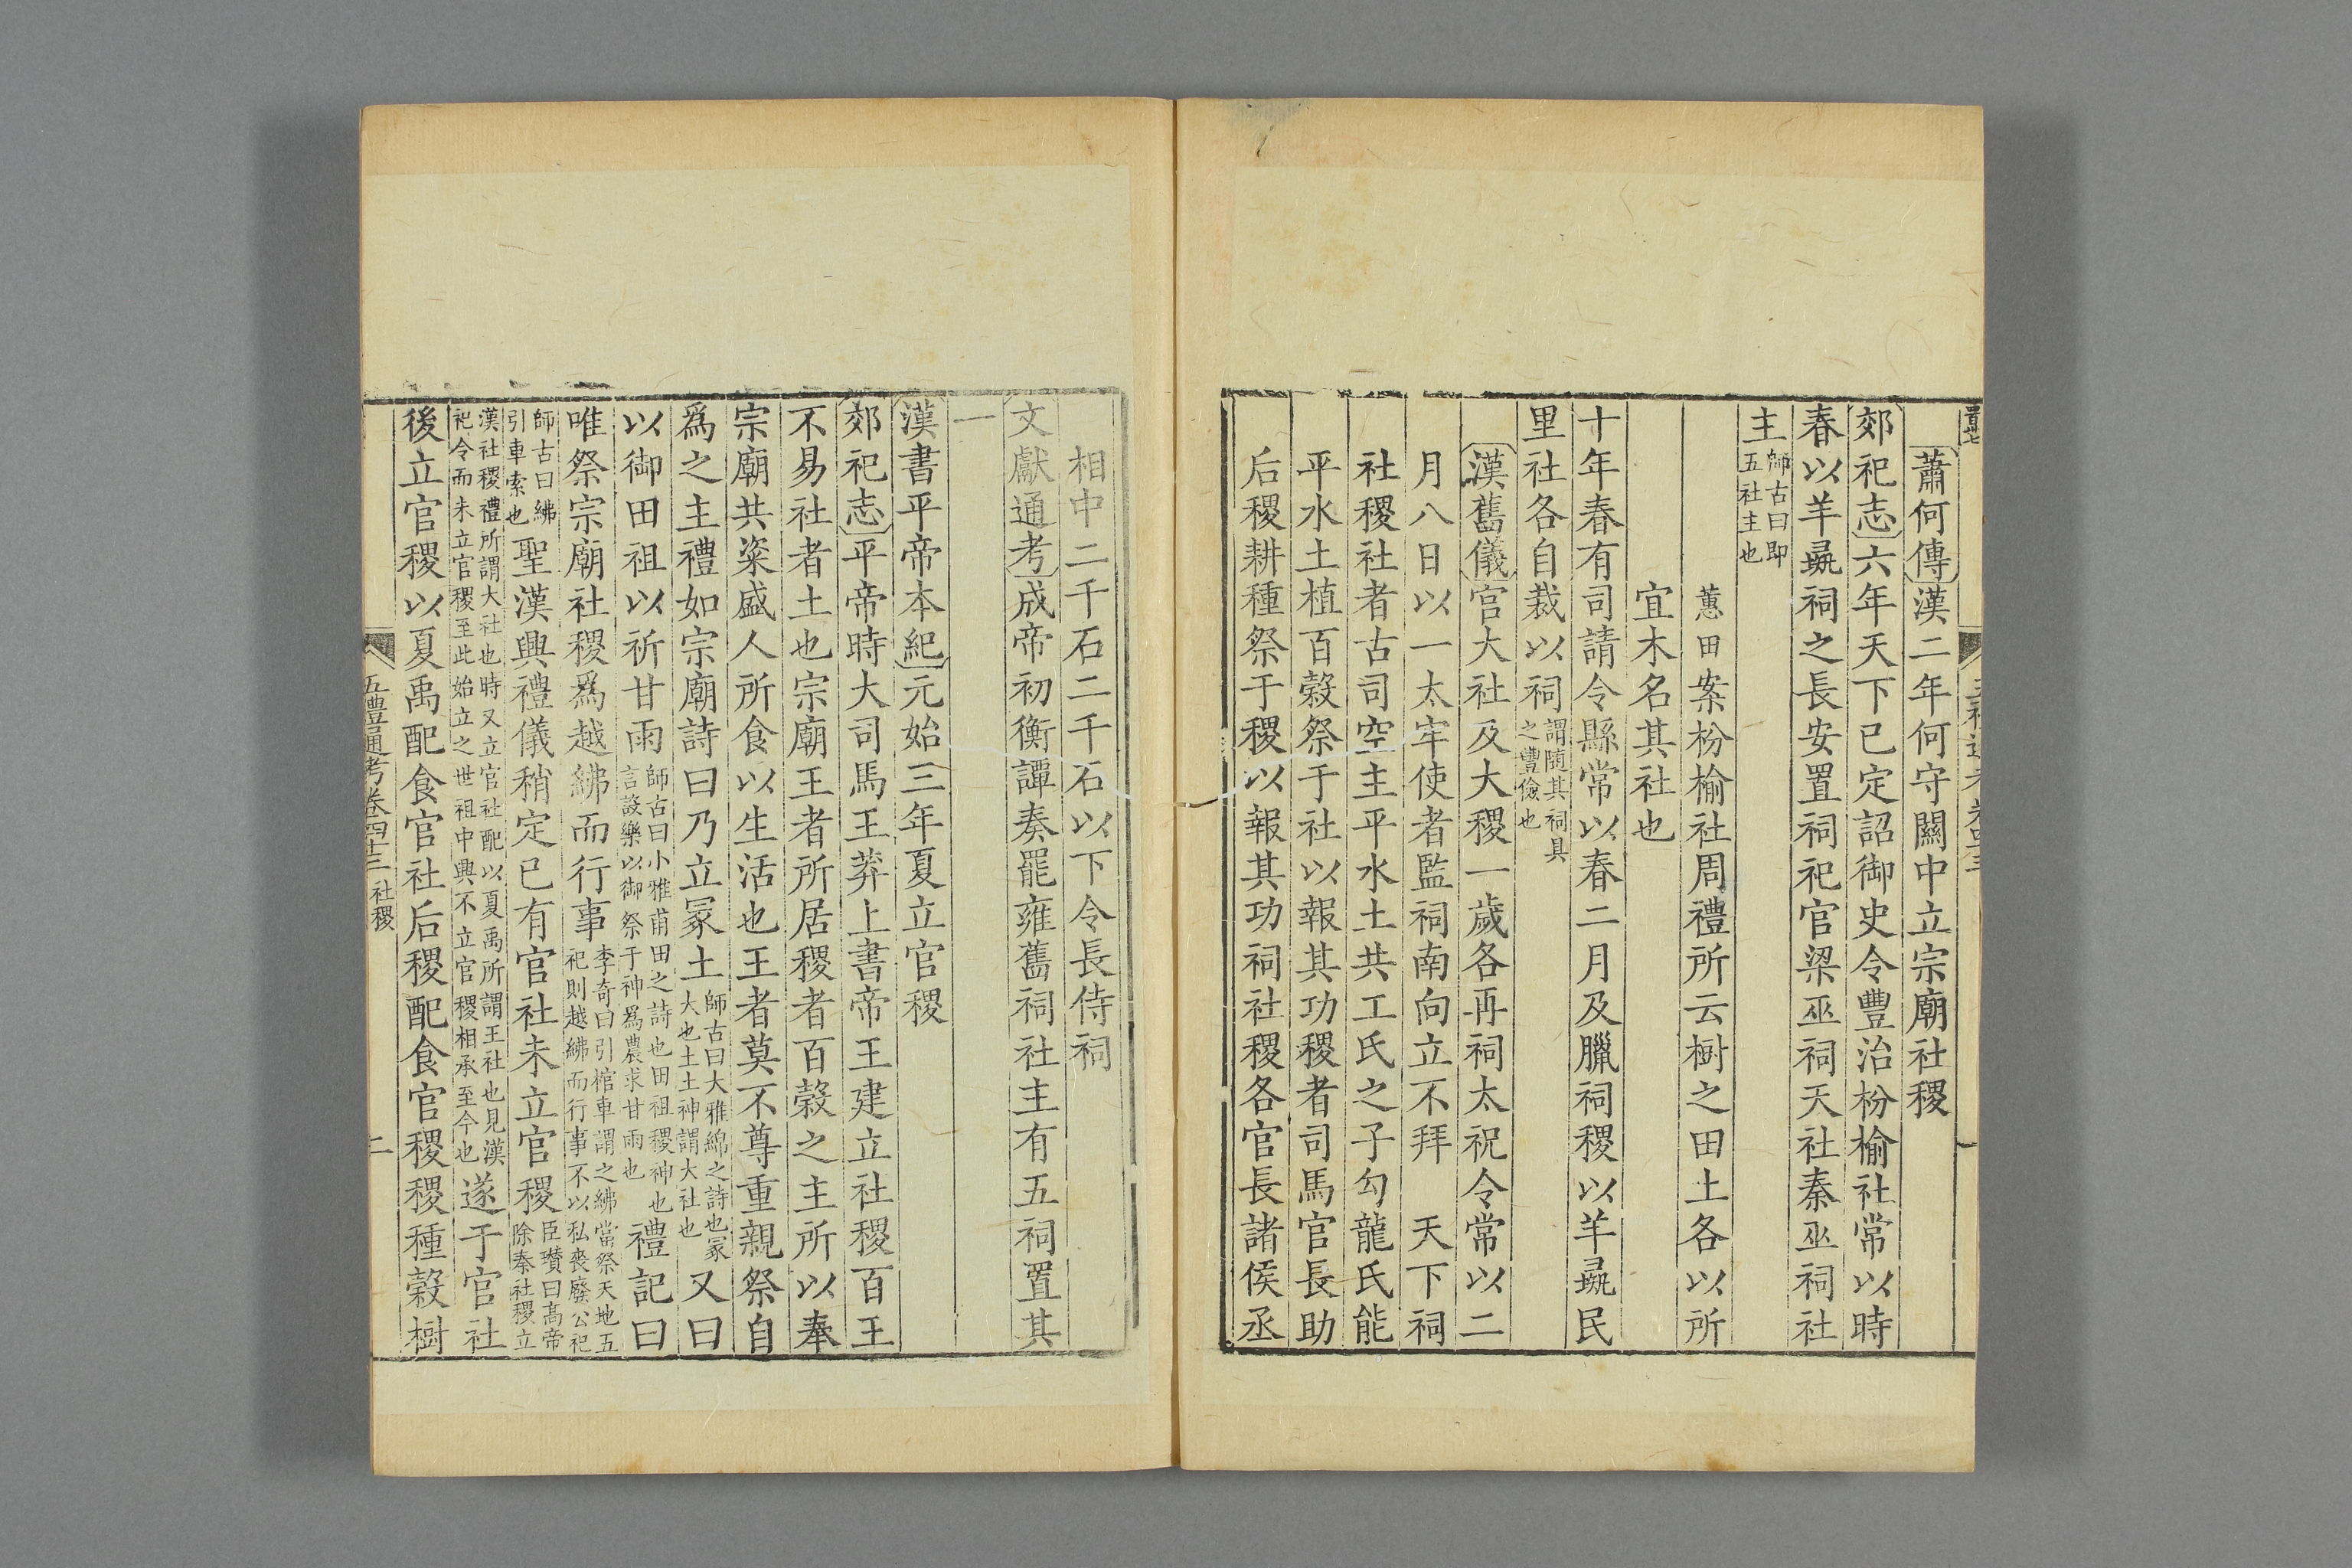 蕭何傳漢二年何守關中立宗廟社稷
郊祀志六年天下已定詔御史令豐治枌榆社常以時
春以羊彘祠之長安置祠祀官梁巫祠天社秦巫祠社
主師古曰即五社主也
蕙田案枌榆社周禮所云樹之田土各以所
宜木名其社也
十年春有司請令縣常以春二月及臘祠稷以羊彘民
里社各自裁以祠謂随其祠具之豐儉也
漢舊儀官大社及大稷一歲各再祠太祝令常以二
月八日以一太牢使者監祠南向立不拜　天下祠
社稷社者古司空主平水土共工氏之子勾龍氏能
平水土植百穀祭于社以報其功稷者司馬官長助
后稷耕種祭于稷以報其功祠社稷各官長諸侯丞
相中二千石二千石以下令長侍祠
文獻通考成帝初衡譚奏罷雍舊祠社主有五祠置其
一
漢書平帝本紀元始三年夏立官稷
郊祀志平帝時大司馬王莽上書帝王建立社稷百王
不易社者土也宗廟王者所居稷者百穀之主所以奉
宗廟共粢盛人所食以生活也王者莫不尊重親祭自
爲之主禮如宗廟詩曰乃立冢土師古曰大雅綿之詩也冢大也土土神謂大社也又曰
以御田祖以祈甘雨師古曰小雅甫田之詩也田祖稷神也言設樂以御祭于神爲農求甘雨也禮記曰
唯祭宗廟社稷爲越紼而行事李奇曰引棺車謂之紼當祭天地五祀則越紼而行事不以私喪廢公祀
師古曰紼引車索也聖漢興禮儀稍定已有官社未立官稷臣瓚曰高帝除秦社稷立
漢社稷禮所謂大社也時又立官社配以夏禹所謂王社也見漢祀令而未立官稷至此始立之世祖中興不立官稷相承至今也遂于官社
後立官稷以夏禹配食官社后稷配食官稷稷種穀樹
五禮通考卷四十三　社稷
二